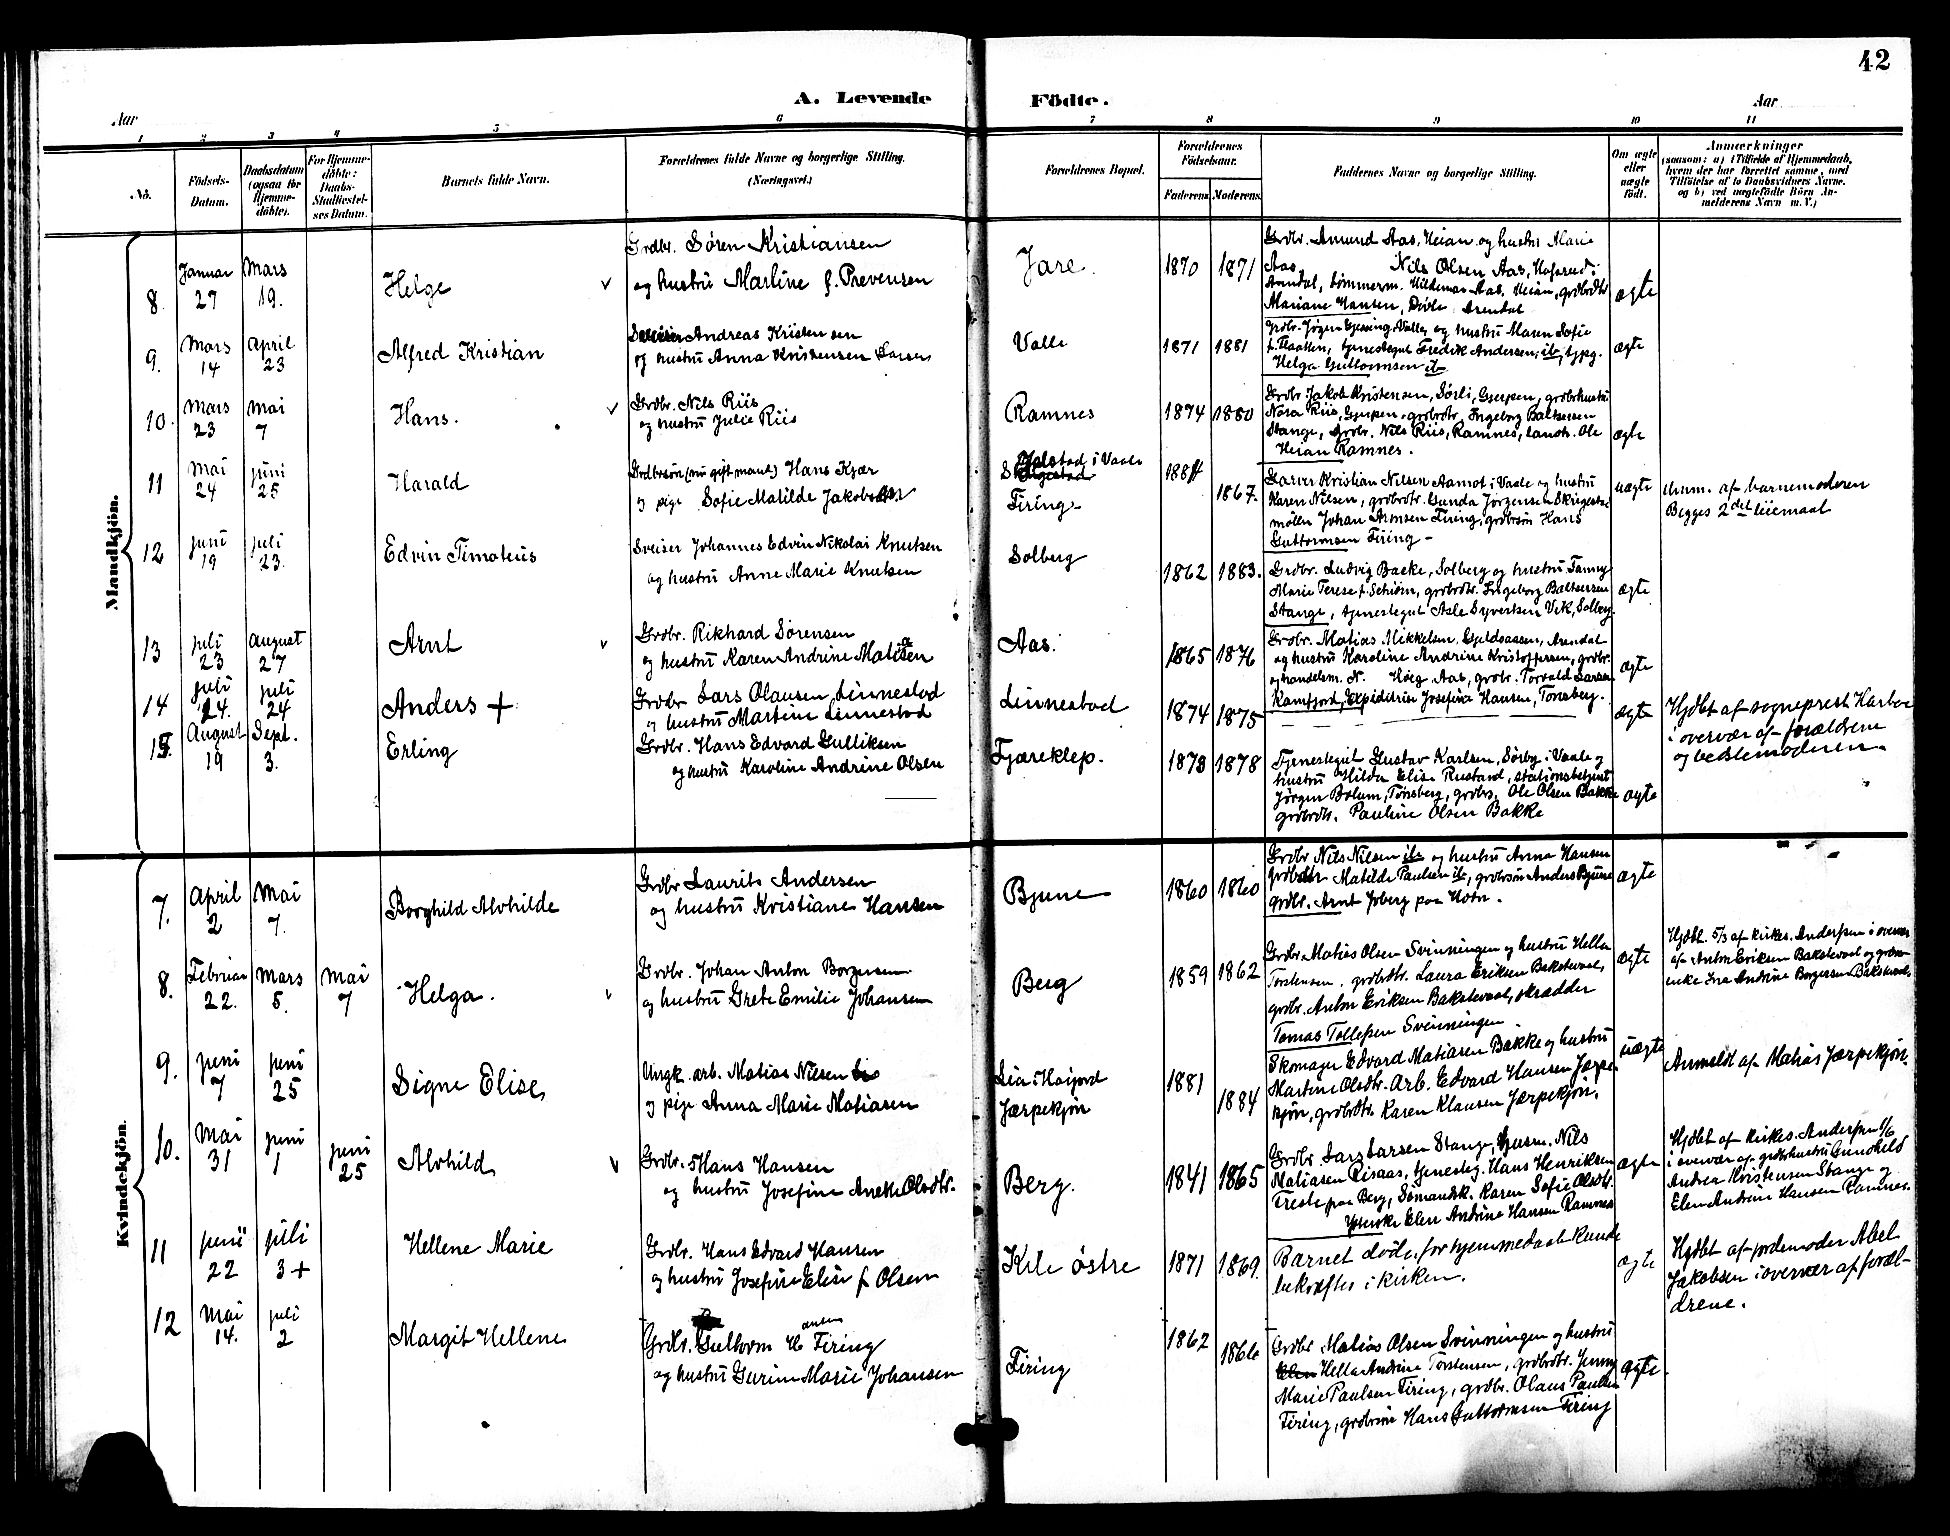 42
A. Levende Födte.
Aar
Aar
1 2 3 4 5 6 7 8 9 10 11
No.
Födsels-Datum.
Daabsdatum (ogsaa för Hjemme-döbte).
For Hjemme-döbte: Daabs-Stadfæstelses Datum.
Barnets fulde Navn.
Forældrenes fulde Navne og borgerlige Stilling. (Næringsvei.)
Forældrenes Bopæl.
Forældrenes Födselsaar.
Faderens Moderens
Faddernes Navne og borgerlige Stilling.
Om ægte eller uægte födt.
Anmærkninger (saasom: a) i Tilfælde af Hjemmedaab, hvem der har forrettet samme, med Tilföielse af to Daabsvidners Navne, og b) ved uægtefödte Börn Anmelderens Navn m. V.)
Mandkjön.
8. Januar 27 Mars 19. Helge
Grdbr. Sören Kristiansen
og hustru Martine f. Prevensen
Jare. 1870 1871
Grdbr. Amund Aas, Heian og hustru Marie
Aas, Nils Olsen Aas, Hofsrud:
Arndal, tömmerm. Hildemar Aas, Heian, grdbrdtr
Mariane Hansen, Arendal
ægte
9. Mars 14 April 23 Alfred Kristian
Andreas Kristensen
og hustru Anna Kristensen
Valle 1871 1881
Grdbr. Jörgen Gjessing Valle og hustru Maren Sofie
f. Flaatten, tjenestegut Fredik Andersen, ib, tjpg.
Helga Guttormsen ib
ægte
10. Mars 23 Mai 7 Hans.
Grdbr. Nils Riis
og hustru Julie Riis
Ramnes 1874 1880
Grdbr. Jakob Kristensen, Sörli, Gjerpen, grdbrhustru
Nora Riis, Gjerpen, grdbrdtr. Ingeborg Baltsersen
Stange, Grdbr. Nils Riis, Ramnes, landh. Ole
Heian Ramnes.
ægte
11 Mai 24 juni 25 Harald
Grdbrsön (nu gift mand) Hans Kjær
og pige Sofie Matilde Jakobsen
i Vaale
Firing 1884 1867.
Garver Kristian Nilsen Aamot i Vaale og hustru
Karen Nilsen, grdbrdtr. Gunda Jörgensen Skrigestad
möller Johan Armsen Firing, grdbrsön Hans
Guttormsen Firing
uægte
Anm. af barnemoderen
Begges 2det leiemaal
12 juni 19 juli 23. Edvin Timoteus
Sveiser Johannes Edvin Nikolai Knutsen
og hustru Anne Marie Knutsen
Solberg 1862 1883.
Grdbr. Ludvig Bakke, Solberg og hustru Fanny
Marie Terese f. Schiönn, grdbrdtr. Ingeborg Baltsersen
Stange, tjenestegut Asle Syvertsen Vik, Solberg
ægte
13 juli 23 august 27 Arnt
Grdbr. Rikhard Sörensen
og hustru Karen Andrine Matisen
Aas. 1865 1876
Grdbr. Matias Mikkelsen, Gjuldsaasen, Arendal
og hustru Karoline Andrine Kristoffersen, grdbr.
og handelsm. N. Höeg Aas, grdbr. Torvald Larsen
Ramfjord, Expeditrise Josefine Hansen, Tönsberg.
ægte
14 juli 24. juli 24 Anders +
Grdbr Lars Olausen Linnestad
og hustru Martine Linnestad
Linnestad 1874 1875
ægte
Hjdbt af sogneprest Harboe
i overvær af forældrene
og bedstemoderen.
15 August 19 Sept. 3. Erling
Grdbr. Hans Edvard Gulliksen
og hustru Karoline Andrine Olsen
Fjæreklep. 1873 1878
Tjenestegut Gustav Karlsen, Sörby i Vaale og
hustru Hilda Elise Rustand, stationsbetjent
Jörgen Bolum, Tönsberg, grdbrs. Ole Olsen Bakke
grdbrdtr. Pauline Olsen Bakke
ægte
Kvindekjön.
7. April 2 Mai 7. Borghild Alvhilde
Grdbr Laurits Andersen
og hustru Kristiane Hansen
Bjune 1860 1860
Grdbr Nils Nilsen ib og hustru Anna Hansen
grdbrdtr Matilde Paulsen ib, grdbrsön Anders Bjune
grdbr. Arnt Joberg paa Hotn.
ægte
8. Februar 22. Mars 5. Mai 7 Helga.
Grdbr. Johan Anton Borgersen
og hustru Grete Emilie Johansen
Berg 1859 1862
Grdbr Matias Olsen Svinningen og hustru Hella
Torstensen, grdbrdtr. Laura Eriksen Bakstevaal,
grdbr. Anton Eriksen Bakstevaal, skrædder
Tomas Tollefsen Svinningen
ægte
Hjdbt. 5/3 af kirkes. Anderssen i overvær
af Anton Eriksen Bakstevaal og grdbr
enke Ina Andrine Borgersen Bakstevaal,
9. juni 7 juni 25 Signe Elise,
Ungk. arb. Matias Nilsen Lio
og pige Anna Marie Matiasen
Lia i Høijord
Jærpekjön 1881 1884
Skomager Edvard Matiasen Bakke og hustru
Martine Olsdtr. Arb. Edvard Hansen Jærpe-
kjön, grdbrdtr Karen Klausen Jærpekjön.
uægte
Anmeldt af Matias Jærpekjön.
10. Mai 31 juni 1 juni 25 Alvhild
Grdbr. Hans Hansen
og hustru Josefine Aneke Olsdtr.
Berg. 1841 1865
Grdbr. Lars Larsen Stange, husm. Nils
Matiasen Risaas, tjenesteg. Hans Henriksen
Freste paa Berg, Sömandsk. Karen Sofie Olsdtr.
Elen Andrine Hansen Ramnes
ægte
Hjdbt af kirkes. Anderssen 1/6
i overvær af grdbrhustru Gunhild
Andrea Kristensen Stange og
Elen Andrine Hansen Ramnes.
11 juni 22 juli 3 + Hellene Marie
Grdbr. Hans Edvard Hansen
og hustru Josefine Elise f Olsen
Kile östre 1871 1869.
Barnet döde, för hjemmedaab kunde
bekræftes i kirken.
ægte
Hjdbt af jordemoder Abel
Jakobsen i overvær af foræl-
drene.
12 Mai 14. juli 2 Margit Hellene
Grdbr. Guttorm H ansen Firing
og hustru Gurine Marie Johansen
Firing 1862 1866
Grdbr Matias Olsen Svinningen og hustru
Elen Hella Andrine Torstensen, grdbrdtr. Jenny
Marie Paulsen Firing, grdbr. Olaus Paulsen
Firing, grdbrsön Hans Guttormsen Firing
ægte.